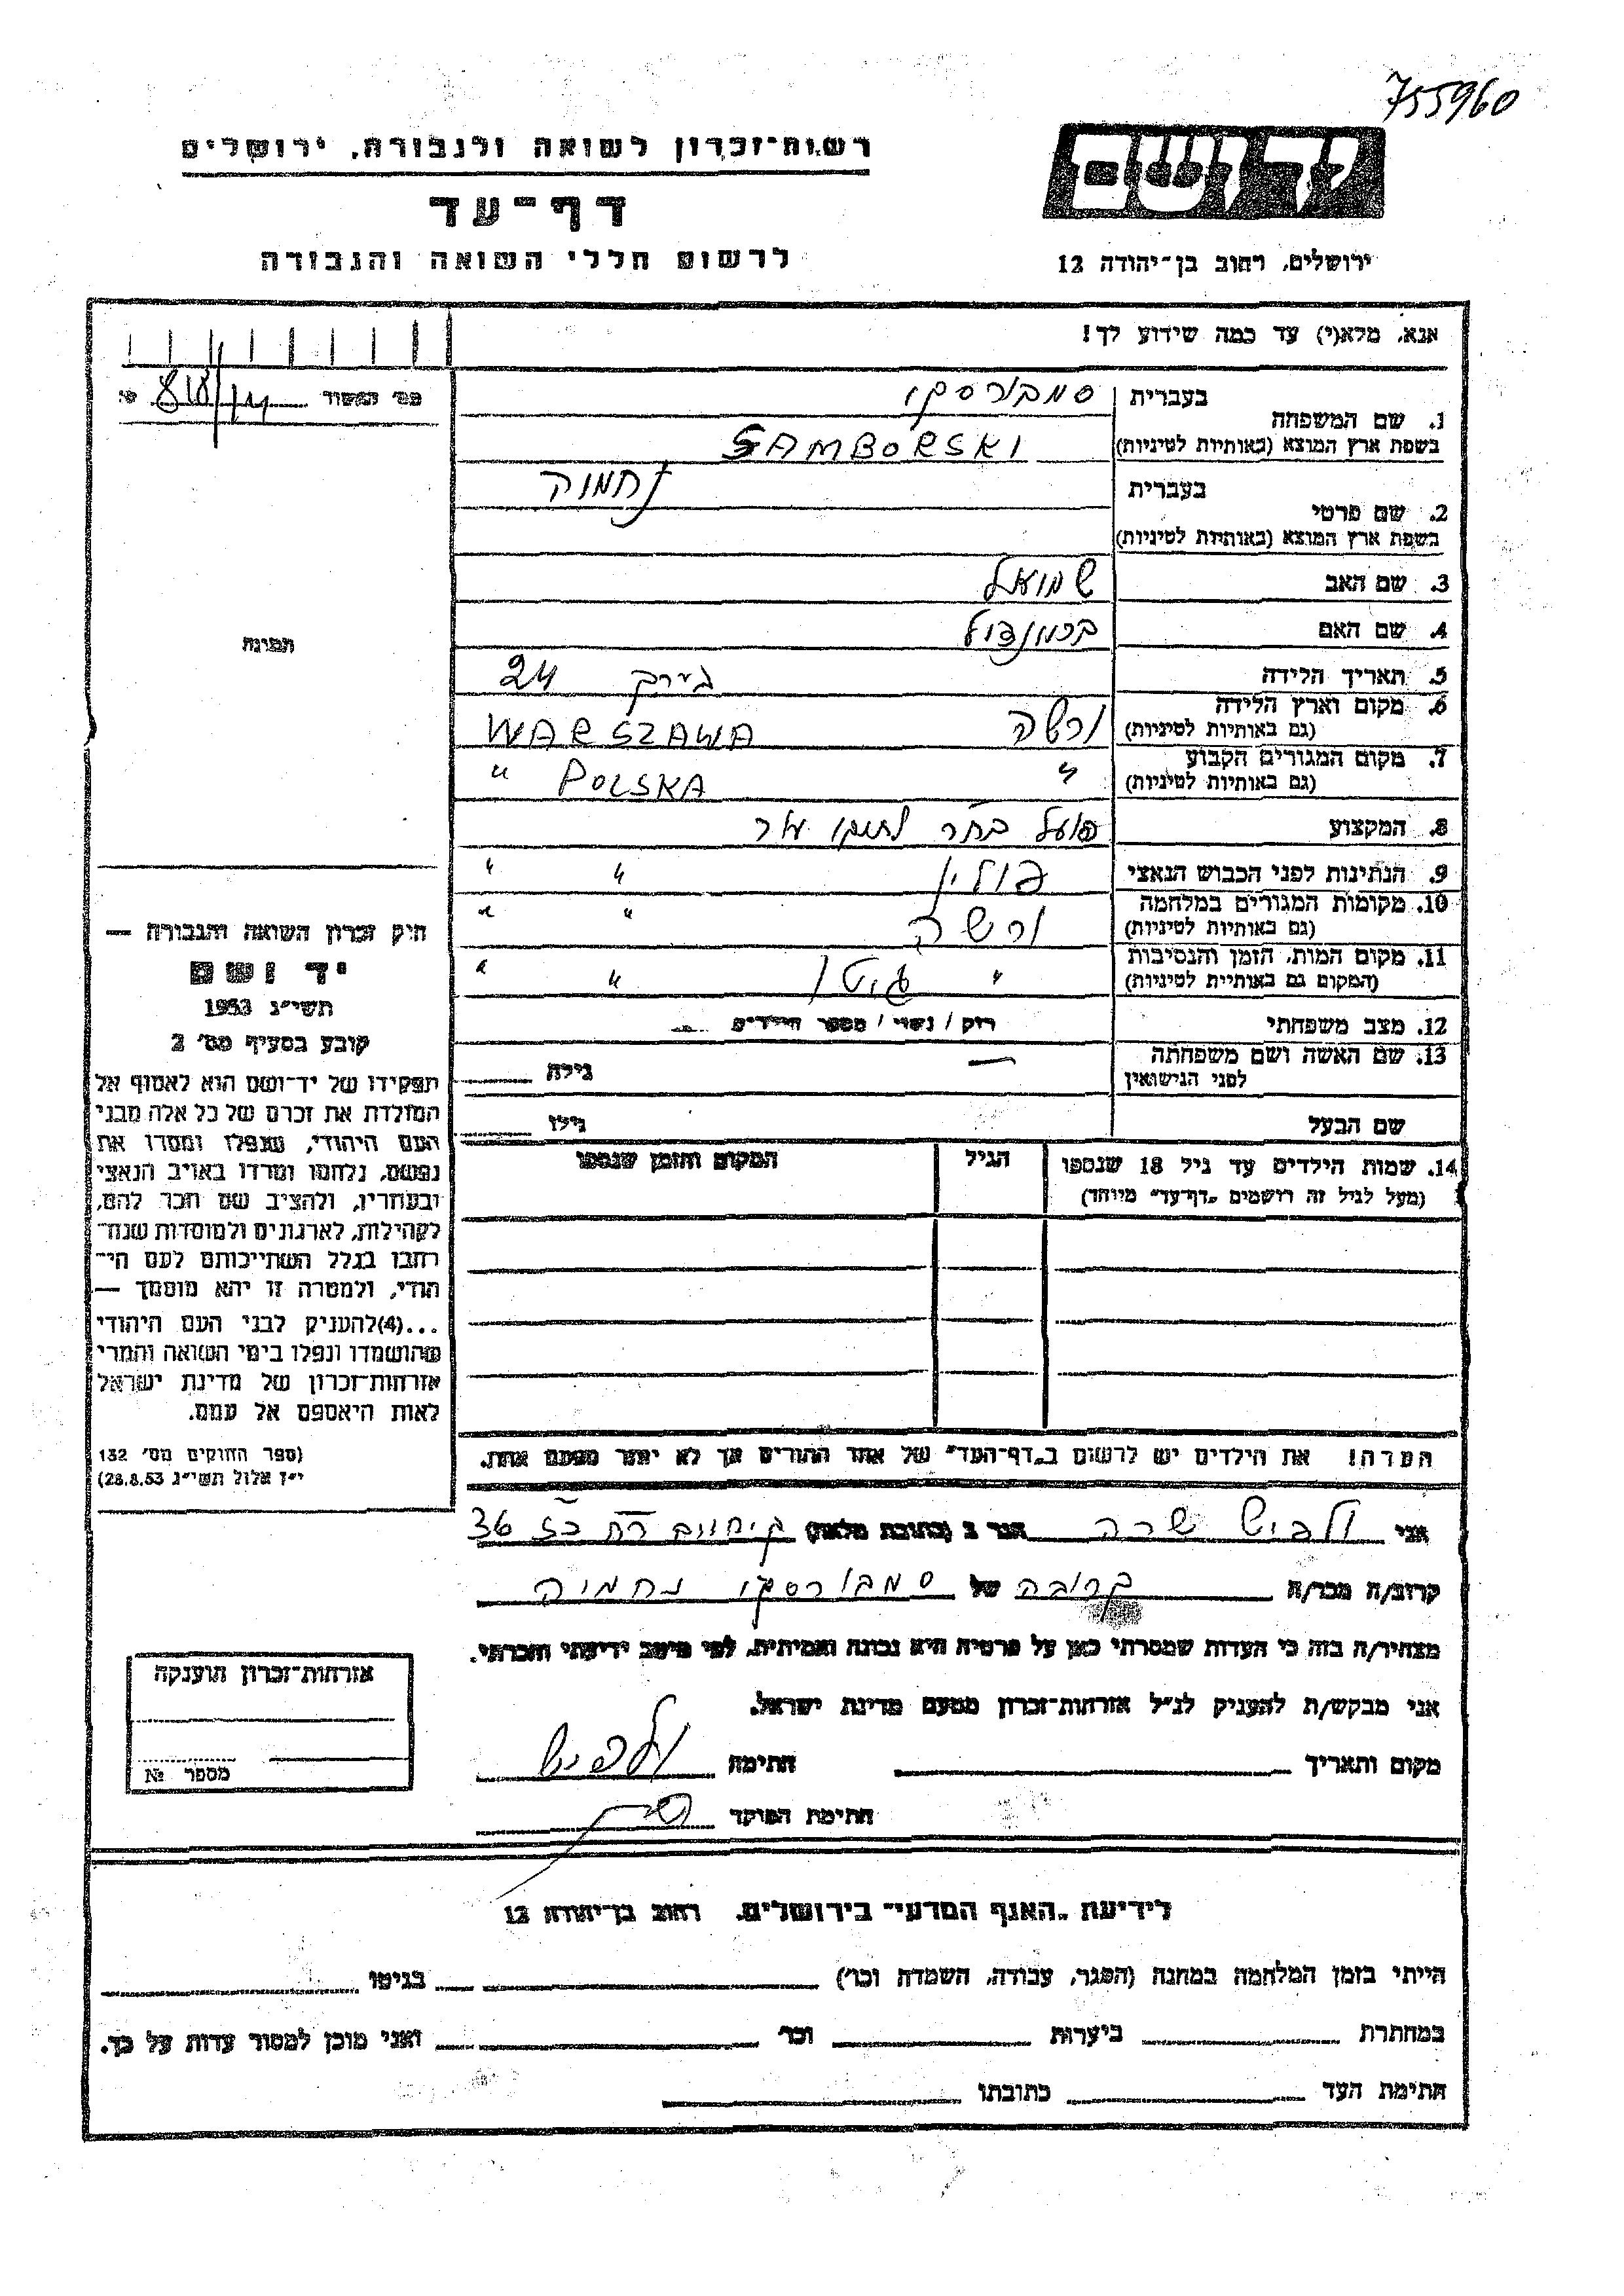 755960
יד ושם
ירושלים, רחוב בן־יהודה 12
רשות־זכרון לשואה ולגבורה, ירושלים
דף־עד
לרשום חללי השואה והגבורה
אנא, מלא(י) עד כמה שידוע לך!
1. שם המשפחה
בעברית סמבורסקי
בשפת ארץ המוצא (באותיות לטיניות) SAMBORSKI
2. שם פרטי
בעברית נחמיה
בשפת ארץ המוצא (באותיות לטיניות)
3. שם האב שמואל
4. שם האם
5. תאריך הלידה 24
6. מקום וארץ הלידה
(גם באותיות לטיניות) ורשה WARSZAWA
7. מקום המגורים הקבוע
(גם באותיות לטיניות) " POLSKA "
8. המקצוע פועל
9. הנתינות לפני הכבוש הנאצי פולין " "
10. מקומות המגורים במלחמה
(גם באותיות לטיניות) ורשה " "
11. מקום המות, הזמן והנסיבות
(המקום גם באותיות לטיניות) " גיטו " "
12. מצב משפחתי רוק / נשוי / מספר הילדים
13. שם האשה ושם משפחתה
לפני הנישואין — גילה
שם הבעל גילו
14. שמות הילדים עד גיל 18 שנספו
(מעל לגיל זה רושמים "דף־עד" מיוחד)
הגיל
המקום והזמן שנספו
הערה! את הילדים יש לרשום ב"דף־העד" של אחד ההורים אך לא יותר מפעם אחת.
תמונה
חוק זכרון השואה והגבורה —
יד ושם
תשי״ג 1953
קובע בסעיף מס׳ 2
תפקידו של יד־ושם הוא לאסוף אל
המולדת את זכרם של כל אלה מבני
העם היהודי, שנפלו ומסרו את
נפשם, נלחמו ומרדו באויב הנאצי
ובעוזריו, ולהציב שם וזכר להם,
לקהילות, לארגונים ולמוסדות שנח־
רבו בגלל השתייכותם לעם הי־
הודי, ולמטרה זו יהא מוסמך —
...(4) להעניק לבני העם היהודי
שהושמדו ונפלו בימי השואה והמרי
אזרחות־זכרון של מדינת ישראל
לאות היאספם אל עמם.
(ספר החוקים מס׳ 132
י״ז אלול תשי״ג 28.8.53)
אני ולביש שרה הגר ב (כתובת מלאה) 36
קרוב/ה מכר/ה קרובה של סמבורסקי נחמיה
מצהיר/ה בזה כי העדות שמסרתי כאן על פרטיה היא נכונה ואמיתית, לפי מיטב ידיעתי והכרתי.
אני מבקש/ת להעניק לנ״ל אזרחות־זכרון מטעם מדינת ישראל.
מקום ותאריך חתימה ולביש
חתימת הפוקד
אזרחות־זכרון הוענקה
מספר №
לידיעת "האגף המדעי" בירושלים, רחוב בן־יהודה 12
הייתי בזמן המלחמה במחנה (הסגר, עבודה, השמדה וכו׳) בגיטו
במחתרת ביערות וכו׳ ואני מוכן למסור עדות על כך.
חתימת העד כתובתו